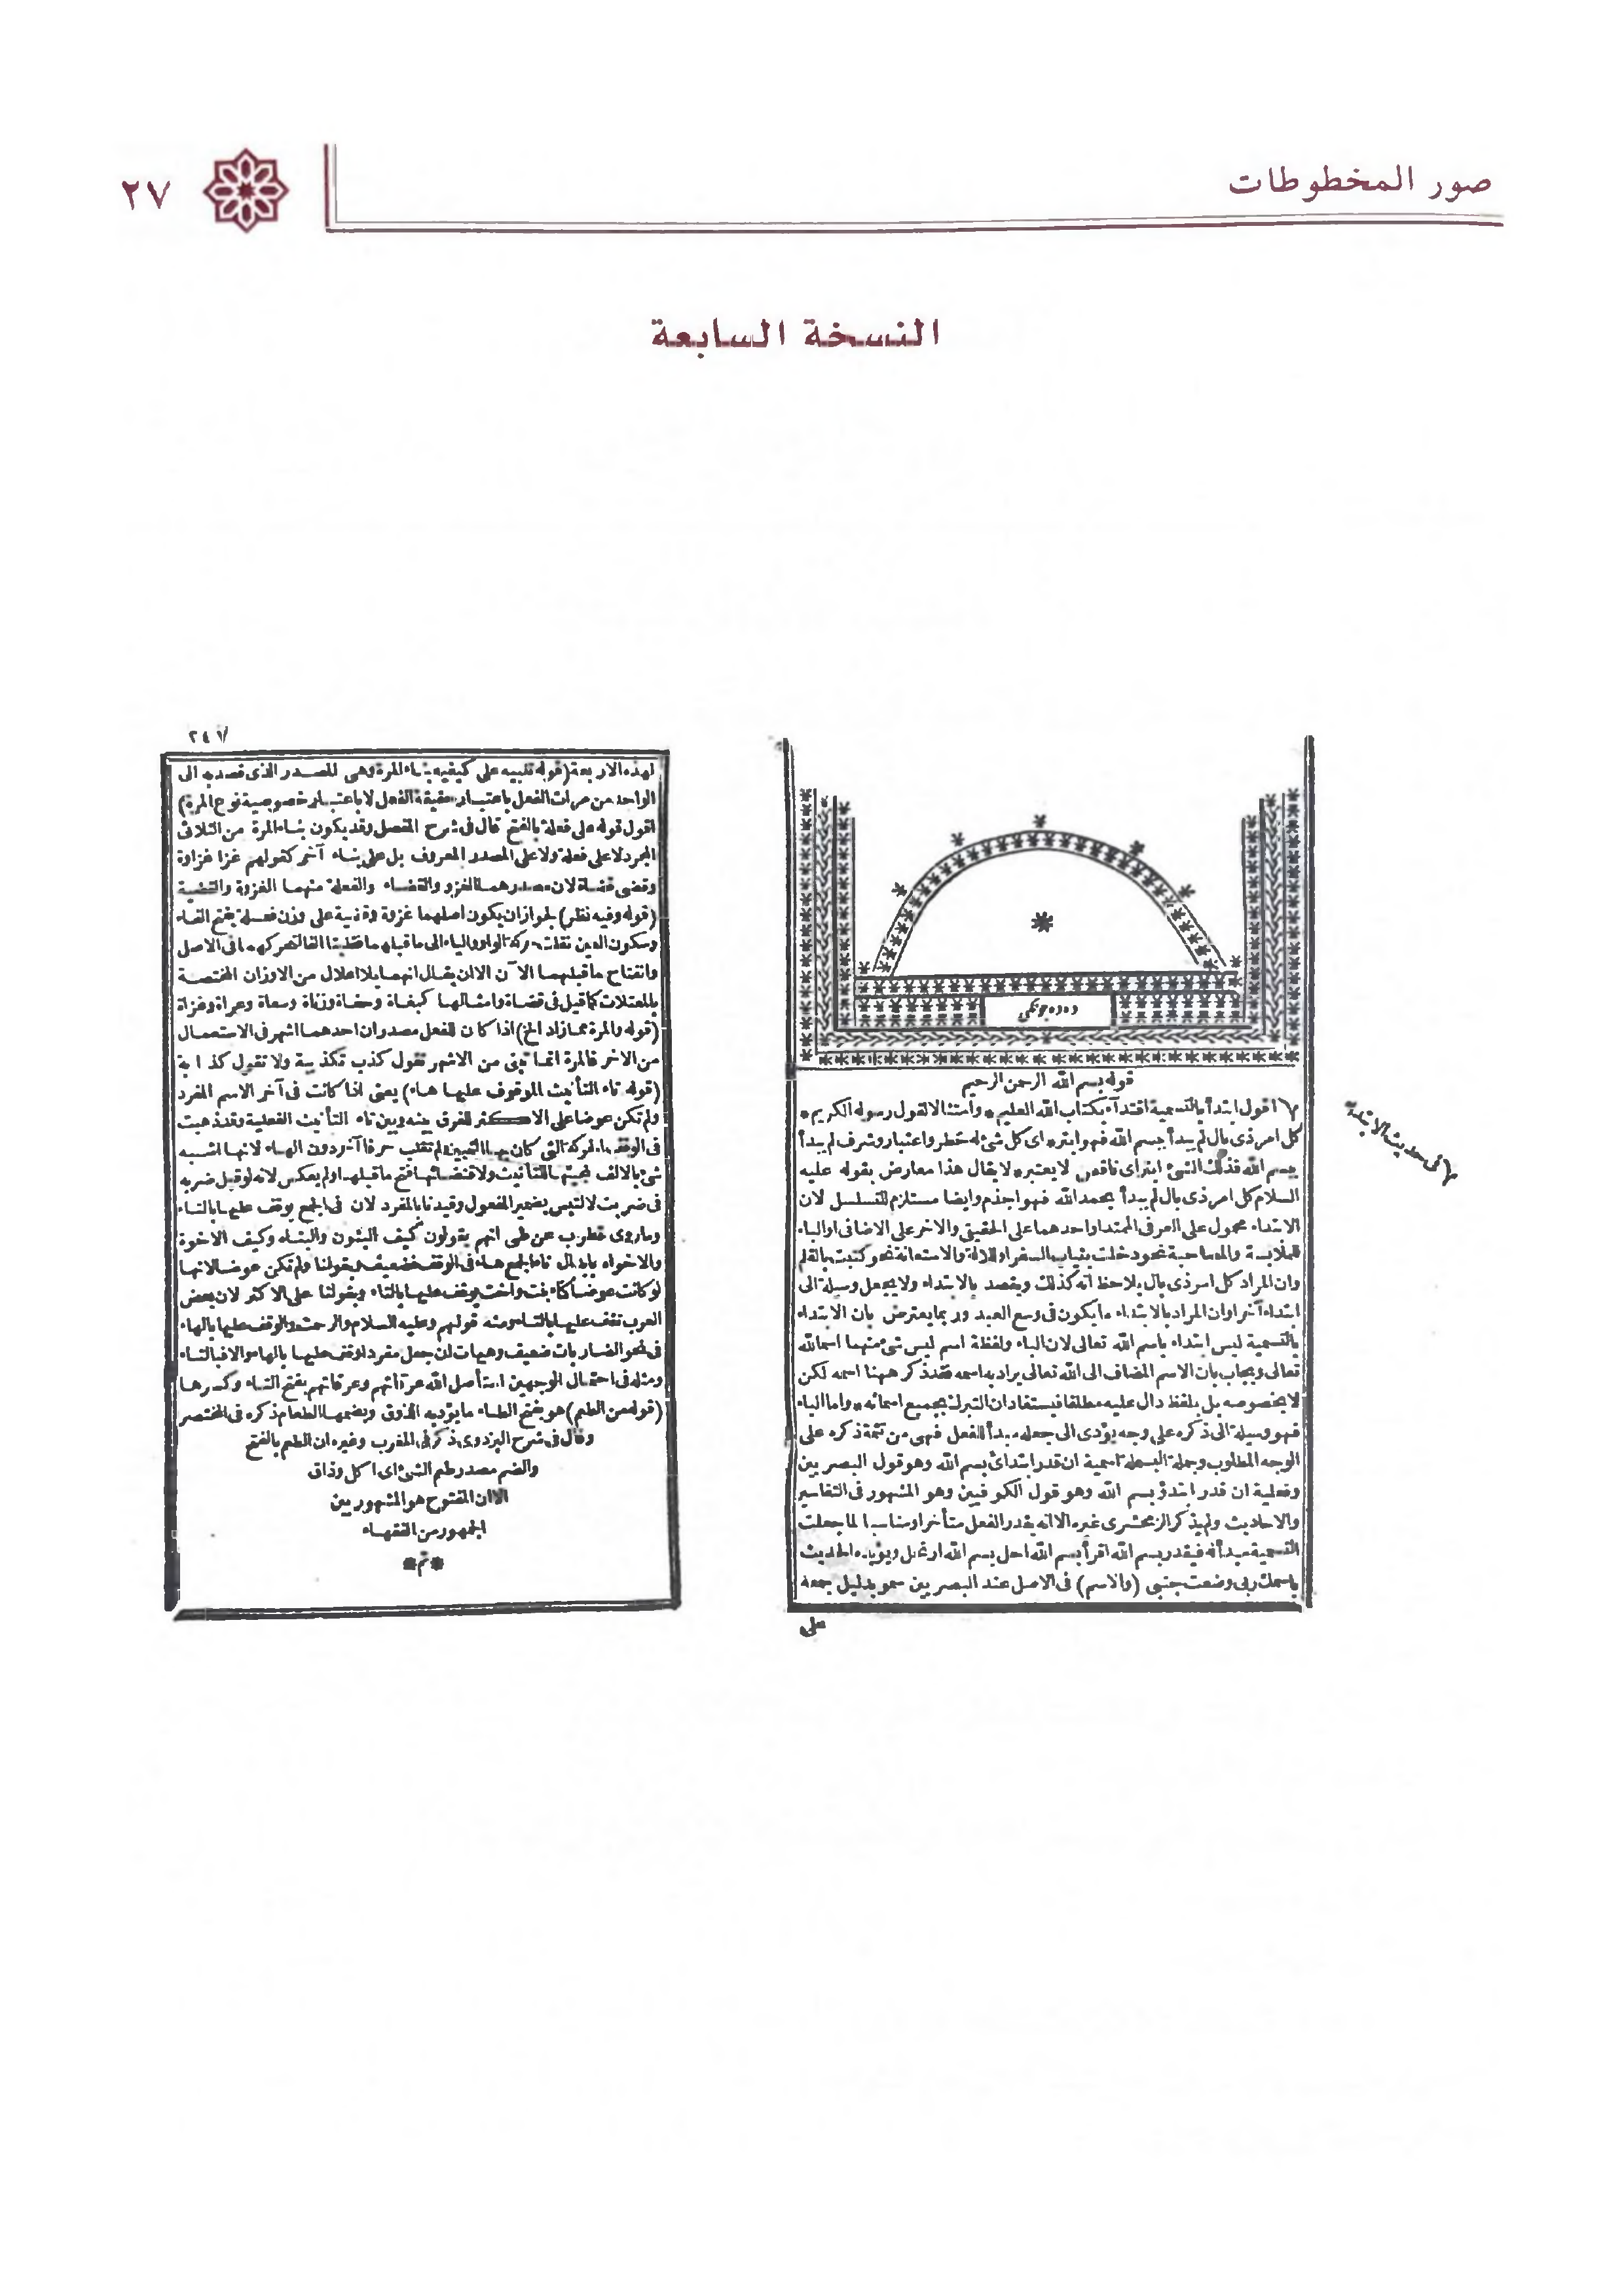 صور المخطوطات
٢٧
النسخة السابعة
دده جونكي
قوله بسم الله الرحمن الرحيم
اقول ابتدأ بالتسمية اقتداء بكتاب الله العليم * وامتثالا لقول رسوله الكريم *
كل امر ذى بال لم يبدأ ببسم الله فهو ابتر * اى كل شئ له خطر واعتبار وشرف لم يبدأ
ببسم الله فذلك الشئ ابتر اى ناقص لا يعتبر * لا يقال هذا معارض بقوله عليه
السلام كل امر ذى بال لم يبدأ بحمد الله فهو اجذم وايضا مستلزم للتسلسل لان
الابتداء محمول على العرفى الممتد او احدهما على الحقيقى والاخر على الاضافى او الباء
للملابسة والمصاحبة نحو دخلت بثياب السفر او للآلة والاستعانة نحو كتبت بالقلم
وان المراد كل امر ذى بال يلاحظ انه كذلك ويقصد بالابتداء ولا يجعل وسيلة الى
ابتداء آخر او ان المراد بالابتداء ما يكون فى وسع العبد وربما يعترض بان الابتداء
بالتسمية ليس ابتداء باسم الله تعالى لان الباء ولفظة اسم ليس شئ منهما اسم الله
تعالى ويجاب بان الاسم المضاف الى الله تعالى يراد به اسمه فقد ذكر ههنا اسمه لكن
لا بخصوصه بل بلفظ دال عليه مطلقا فيستفاد ان التبرك بجميع اسمائه * واما الباء
فهو وسيلة الى ذكره على وجه يؤدى الى جعله مبدأ للفعل فهى من تتمة ذكره على
الوجه المطلوب وجملة البسملة اسمية ان قدر ابتدائى بسم الله وهو قول البصريين
وفعلية ان قدر ابتدؤ بسم الله وهو قول الكوفيين وهو المشهور فى التفاسير
والاحاديث ولم يذكر الزمخشرى غيره الا انه يقدر الفعل متأخرا ومناسبا لما جعلت
التسمية مبدأ له فيقدر بسم الله اقرأ بسم الله احل بسم الله ارتحل ويؤيده الحديث
باسمك ربى وضعت جنبى (والاسم) فى الاصل عند البصريين سمو بدليل جمعه
على
فى حديث الابتداء
٢٤٧
لهذه الاربعة (قوله تنبيه على كيفية بناء المرة وهى المصدر الذى قصد به الى
الواحد من مرات الفعل باعتبار حقيقة الفعل لا باعتبار خصوصية نوع المرة)
اقول قوله على فعلة بالفتح قال فى شرح المفصل وقد يكون بناء المرة من الثلاثى
المجرد لا على فعلة ولا على المصدر المعروف بل على بناء آخر كقولهم غزا غزاوة
وقضى قضاة لان مصدرهما الغزو والقضاء والفعلة منهما الغزوة والقضية
(قوله وفيه نظر) لجواز ان يكون اصلهما غزوة وقضية على وزن فعلة بفتح الفاء
وسكون العين نقلت حركة الواو والياء الى ما قبلهما فقلبتا الفا لتحركهما فى الاصل
وانفتاح ما قبلهما الآن الا ان يقال انهما بلا اعلال من الاوزان المختصة
بالمعتلات كما قيل فى قضاة وامثالها
(قوله والمرة مما زاد الخ) اذا كان للفعل مصدران احدهما اشهر فى الاستعمال
من الاخر فالمرة انما تبنى من الاشهر تقول كذب تكذيبة ولا تقول كذابة
(قوله تاء التأنيث الموقوف عليها هاء) يعنى اذا كانت فى آخر الاسم المفرد
ولم تكن عوضا على الاكثر للفرق بينه وبين تاء التأنيث الفعلية وقد ذهبت
فى الوقف الحركة التى كان بها التمييز لم تقلب حرفا آخر دون الهاء لانها اشبه
شئ بالالف لمجيئها للتأنيث ولاقتضائها فتح ما قبلها ولم يعكس لانه لو قيل ضربه
فى ضربت لالتبس بضمير المفعول وقيدنا بالمفرد لان فى الجمع يوقف عليها بالتاء
وما روى قطرب عن طى انهم يقولون كيف البنون والبناه وكيف الاخوة
والاخواه بابدال تاء الجمع هاء فى الوقف فضعيف وبقولنا ولم تكن عوضا لانها
لو كانت عوضا كتاء بنت واخت يوقف عليها بالتاء وبقولنا على الاكثر لان بعض
العرب تقف عليها بالتاء ومنه قولهم وعليه السلام والرحمت والوقف عليها بالهاء
فى نحو الضاربات ضعيف وهيهات ان جعل مفردا وقف عليها بالهاء والا فبالتاء
ومثله فى احتمال الوجهين استأصل الله عرقاتهم وعرقاتهم بفتح التاء وكسرها
(قوله من الطعم) هو بفتح الطاء ما يؤديه الذوق وبضمها الطعام ذكره فى المختصر
وقال فى شرح البزدوى ذكر فى المغرب وغيره ان الطعم بالفتح
والضم مصدر طعم الشئ اى اكل وذاق
الا ان المفتوح هو المشهور بين
الجمهور من الفقهاء
* تم *